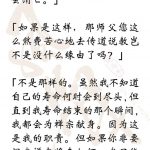 会消亡。」
「如果是这样，那师父您这
么煞费苦心地去传道说教岂
不是没什么缘由了吗？」
「不是那样的。虽然我不知道
自己的寿命何时会到尽头，但
直到我寿命结束的那个瞬间，
我都会为祥宗献身。因为这
是我的职责。但如果你非要